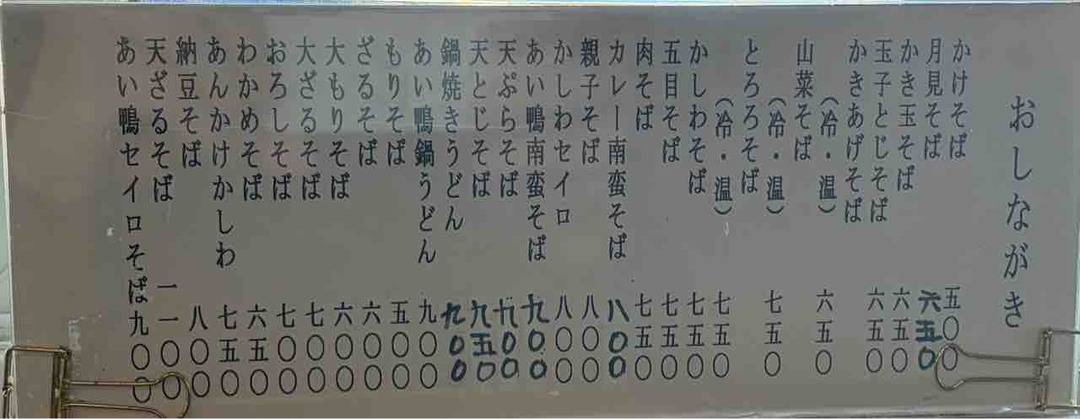 おしながき
かけそば 五〇〇
月見そば 六五〇
かき玉そば 六五〇
玉子とじそば 六五〇
かきあげそば
(冷・温) 六五〇
山菜そば
(冷・温) 七五〇
とろろそば
(冷・温) 七五〇
かしわそば 七五〇
五目そば 七五〇
肉そば 七五〇
カレー南蛮そば 八〇〇
親子そば 八〇〇
かしわセイロ 八〇〇
あい鴨南蛮そば 九〇〇
天ぷらそば 九〇〇
天とじそば 九五〇
鍋焼きうどん 九〇〇
あい鴨鍋うどん 九〇〇
もりそば 五〇〇
ざるそば 六〇〇
大もりそば 六〇〇
大ざるそば 七〇〇
おろしそば 七〇〇
わかめそば 六五〇
あんかけかしわ 七五〇
納豆そば 八〇〇
天ざるそば 一一〇〇
あい鴨セイロそば 九〇〇